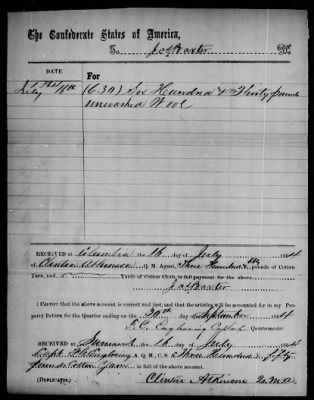 The Confederate States of America,
To J. G. Baxter Dr.
DATE
For
1864
July 16th
(630) Six Hundred & Thirty pounds
unwashed Wool
RECEIVED at Columbia the 16 day of July 1864
of Clinton Atkinson Q. M. Agent, Three Hundred & fifty pounds of Cotton
Yarn, and Yards of Cotton Cloth in full payment for the above.
J. G. Baxter
I CERTIFY that the above account is correct and just, and that the articles will be accounted for in my Property Return for the Quarter ending on the 30th of September 1864
Quartermaster
RECEIVED at the 16 day of July 1864
Capt A. Q. M., C. S. Three Hundred & fifty
pounds Cotton Yarn
(DUPLICATE.)
Clinton Atkinson Q. M. A.